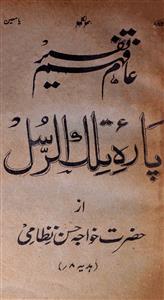 عام فہم تفسیر
پارۂ تلک الرسل
از
حضرت خواجہ حسن نظامی
(ہدیہ ۸ر)